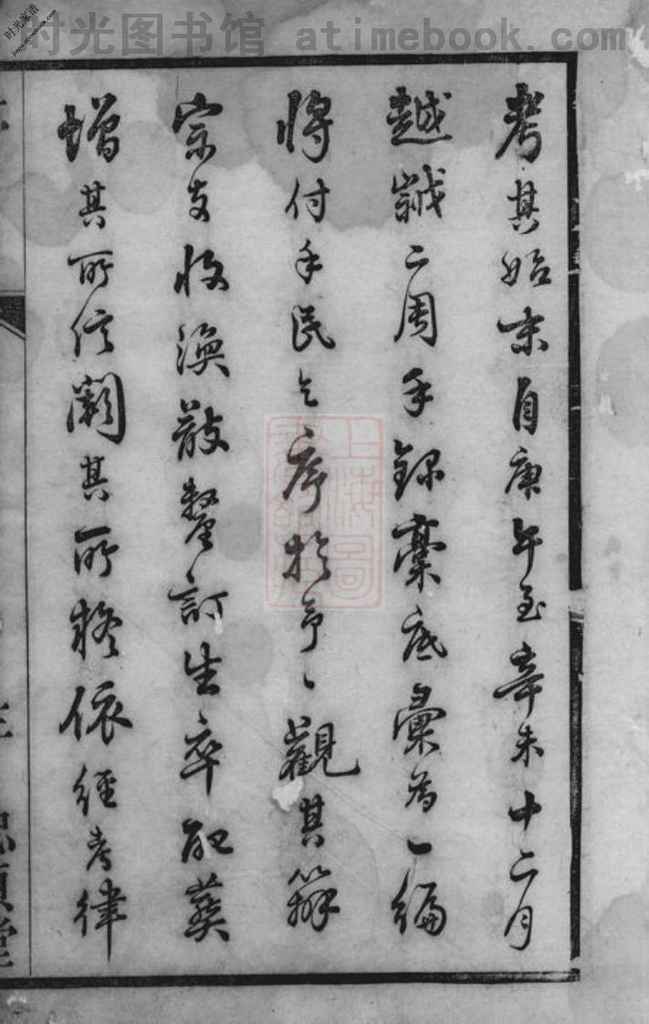 时光图书馆 atimebook.com
考其始末自庚午至辛未十二月
越諴二周手錄藁底彙为一编
將付手民乞序於予〻觀其辦
宗支收渙散釐訂生卒配葵
增其所信闕其所疑依經考律